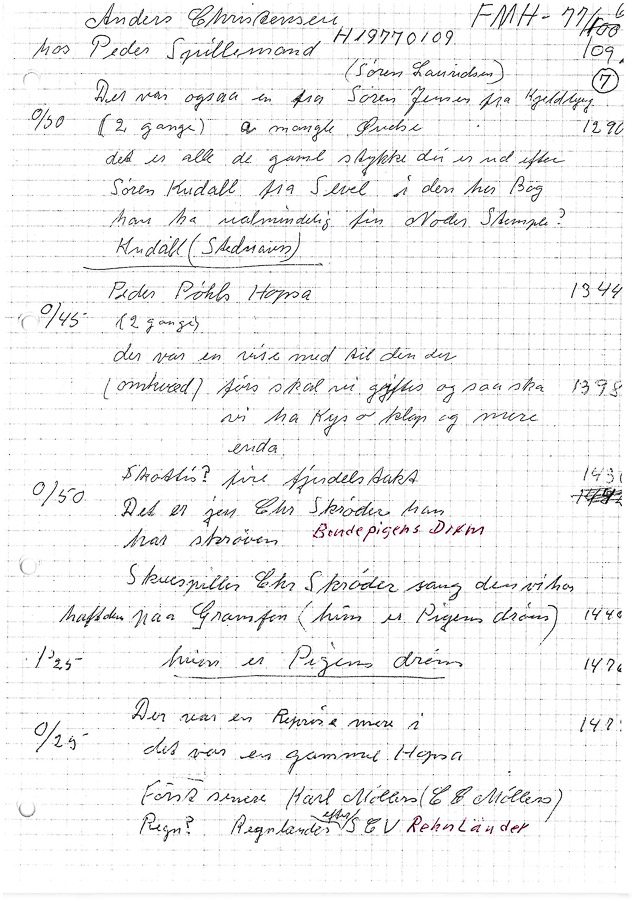 Anders Christensen FMH-77/100 6
hos Peder Spillemand H19770109 109.
(Søren Lauridsen) 7
Der var ogsaa en fra Søren Jensen fra Kjeldbjerg
0/50 (2 gange) a mangle Øvelse 1290
det er alle de gaml stykke der er ud efter
Søren Kudall fra Sevel i den her Bog
han ha ualmindelig fin Noder Stemple?
Kudall (Stednavn)
Peder Pøhls Hopsa 1344
0/45 (2 gange)
der var en vise med til den der
(omtræd) førs skal vi gjftes og saa ska 1398
vi ha Kys o klap og mere
enda
Skottis? fire fjerdels takt 143
0/50 Det er jen Chr Skrøder han
har skrøven Bondepigens Drøm
Skuespiller Chr Skrøder sang den vi har
haft den paa Gramofon (hun er Pigens drøm) 144
1/25 hun er Pigens drøm 147
Der var en Reprise mere i 147
0/25 det var en gammel Hopsa
Først senere Karl Møllers (C E Møllers)
Regn? Regnlander efter SCV Rehnländer